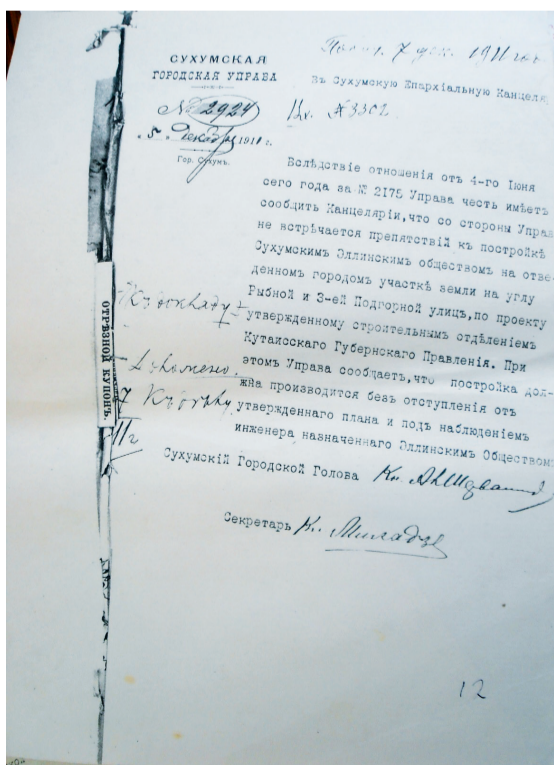 СУХУМСКАЯ
ГОРОДСКАЯ УПРАВА
№ 2924
5 Декабря 1911 г.
Гор. Сухумъ.
7 дек. 1911 года
Въ Сухумскую Епархіальную Канцеля
Вх. № 3302
Вслѣдствіе отношенія отъ 4-го Іюня
сего года за № 2175 Управа честь имѣетъ
сообщить Канцеляріи,что со стороны Управ
не встрѣчается препятствій къ постройкѣ
Сухумскимъ Эллинскимъ обществомъ на отве-
денномъ городомъ участкѣ земли на углу
Рыбной и 3-ей Подгорной улицъ,по проекту
утвержденному строительнымъ отдѣленіемъ
Кутаисскаго Губернскаго Правленія. При
этомъ Управа сообщаетъ,что постройка дол-
жна производится безъ отступленія отъ
утвержденнаго плана и подъ наблюденіемъ
инженера назначеннаго Эллинскимъ Обществом
Сухумскій Городской Голова Кн.
Секретарь Кн.
ОТРѢЗНОЙ КУПОНЪ.
7
11 г
12